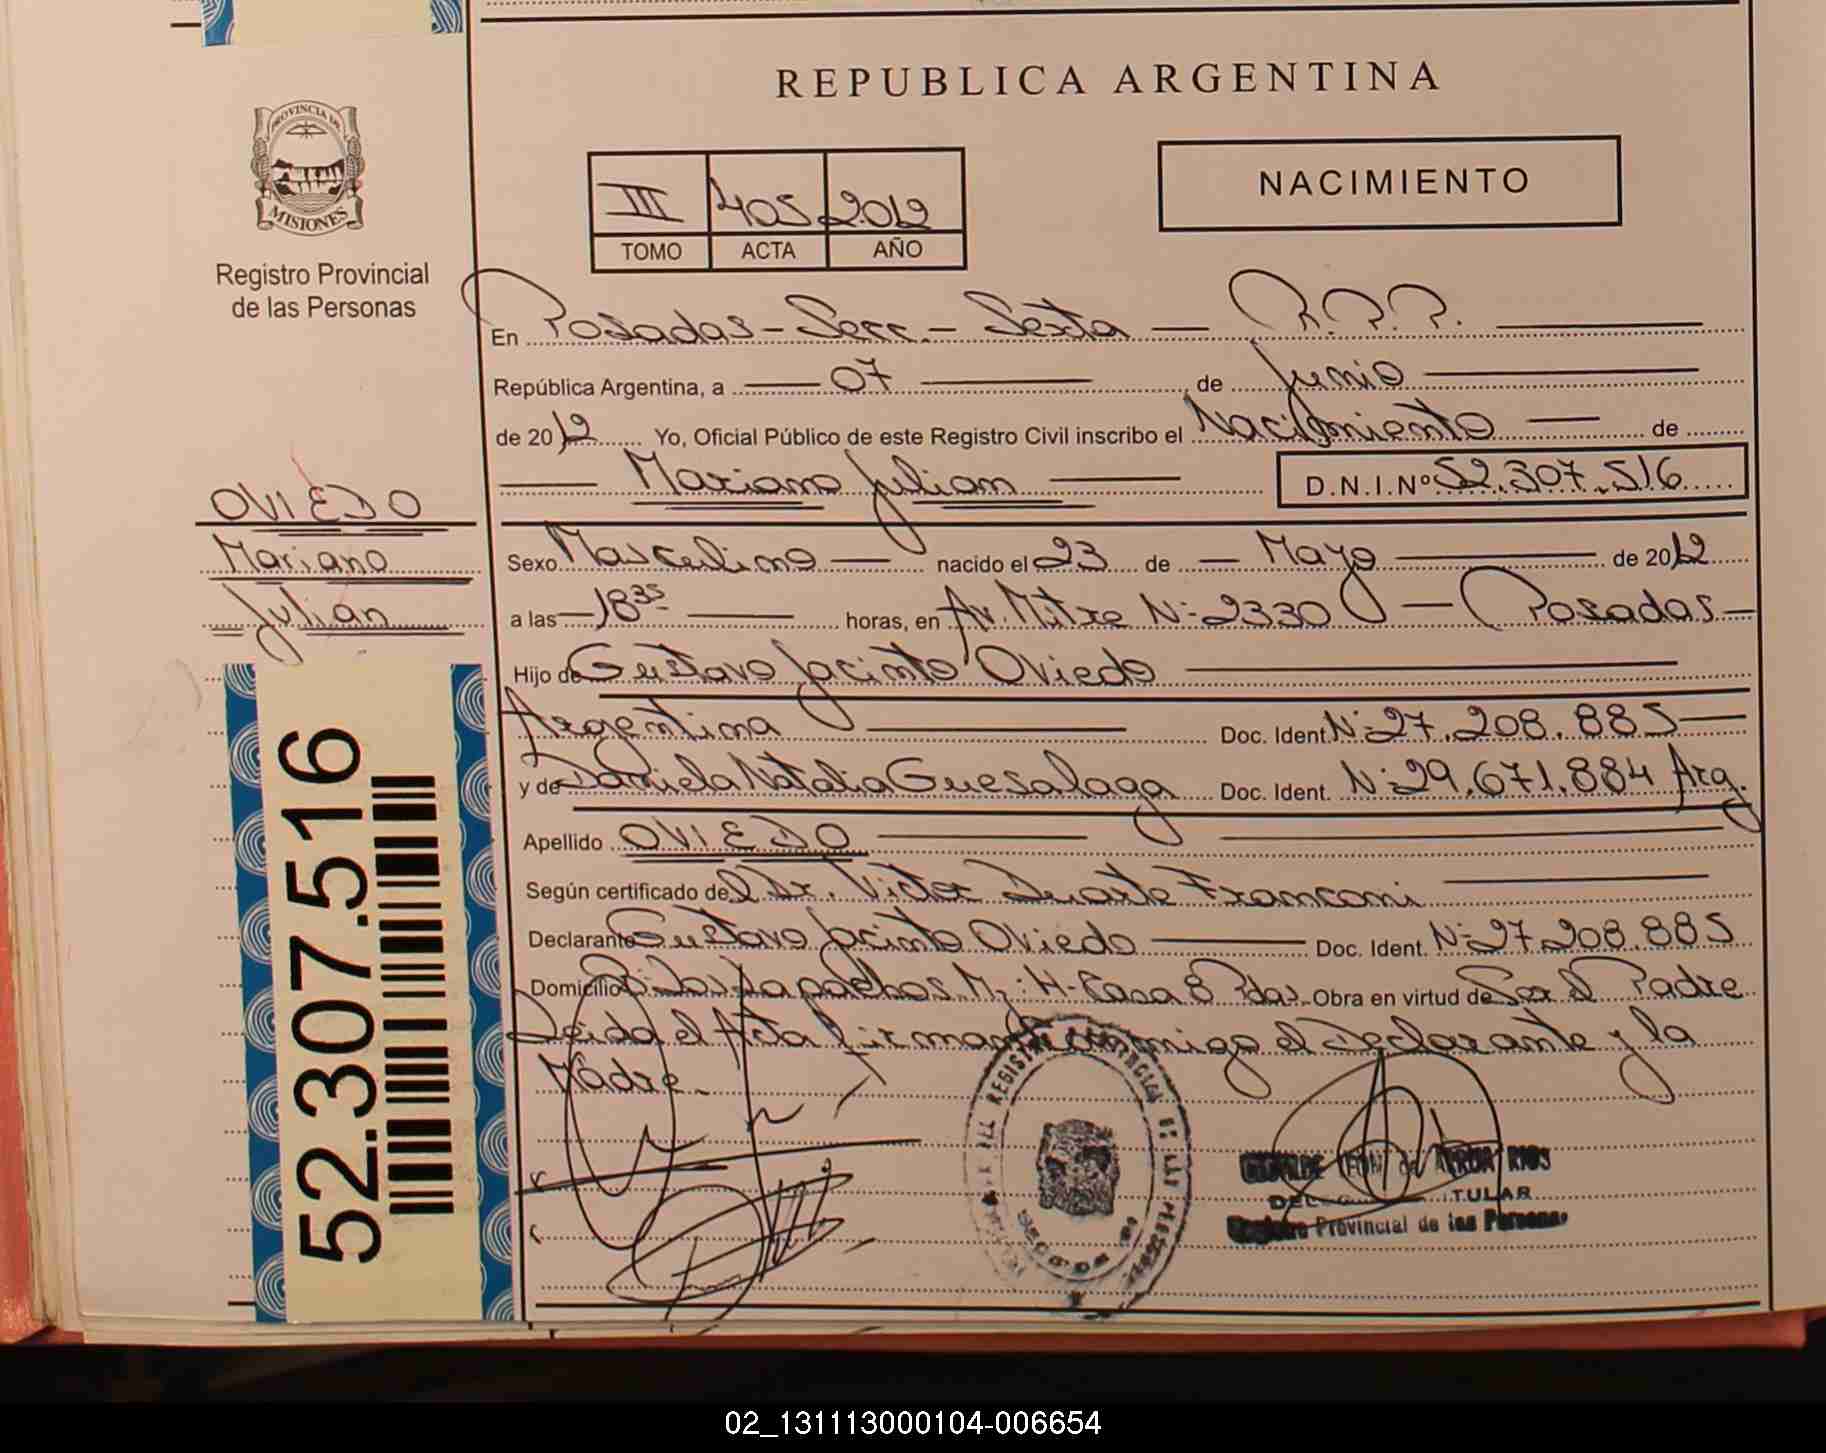 REPUBLICA ARGENTINA
PROVINCIA DE
MISIONES
Registro Provincial
de las Personas
III 405 2012
TOMO ACTA AÑO
NACIMIENTO
En Posadas - Secc. - Sexta — R.P.P.
República Argentina, a 07 de Junio
de 2012 Yo, Oficial Público de este Registro Civil inscribo el Nacimiento de
Mariano Julian D.N.I.Nº 52.307.516
OVIEDO
Mariano
Julián
Sexo Masculino nacido el 23 de Mayo de 2012
a las 18 35 horas, en Av. Mitre Nº 2330 — Posadas
Hijo de Gustavo Jacinto Oviedo
Argentina Doc. Ident. Nº 27.208.885
y de Daniela Natalia Guesalaga Doc. Ident. Nº 29.671.884 Arg.
Apellido OVIEDO
Según certificado del Dr. Victor Duarte Franconi
Declarante Gustavo Jacinto Oviedo Doc. Ident. Nº 27.208.885
Domicilio Bº Los Lapachos Mz: H - Casa 8 Pdas. Obra en virtud de Ser el Padre
Leida el Acta firman conmigo el Declarante y la
Madre.
52.307.516
TITULAR
Registro Provincial de las Personas
02_131113000104-006654